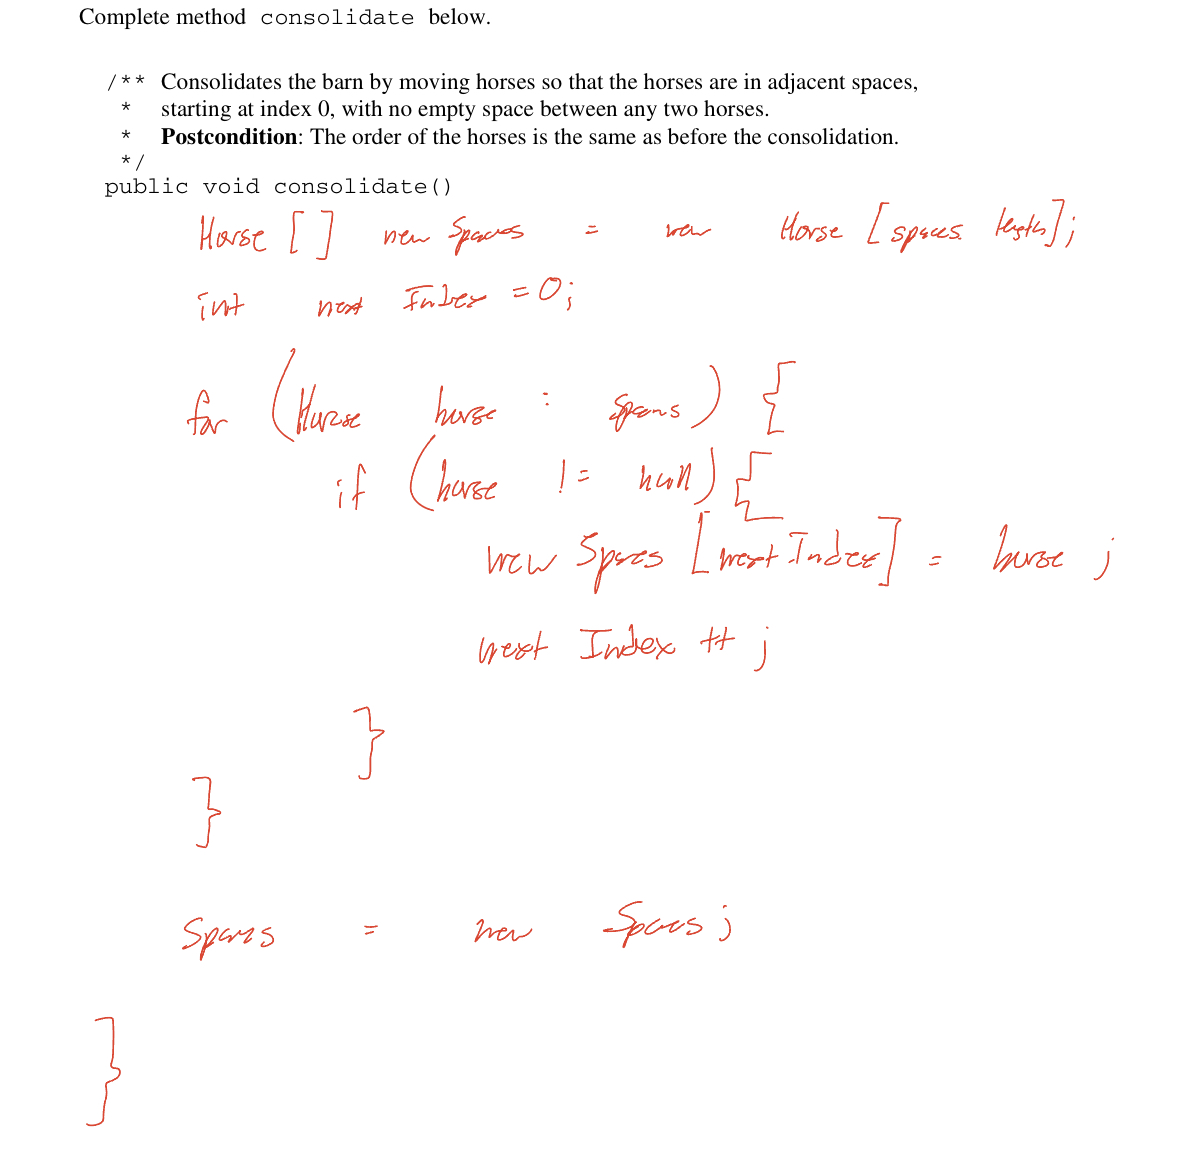 Complete method consolidate below.
/** Consolidates the barn by moving horses so that the horses are in adjacent spaces,
* starting at index 0, with no empty space between any two horses.
* Postcondition: The order of the horses is the same as before the consolidation.
*/
public void consolidate()
Horse [ ] new Spaces = new Horse [spaces. length];
int next Index = 0;
for (Horse horse : spaces) {
if (horse != null) {
new Spaces [next Index] = horse ;
next Index ++ ;
}
}
Spaces = new Spaces ;
}